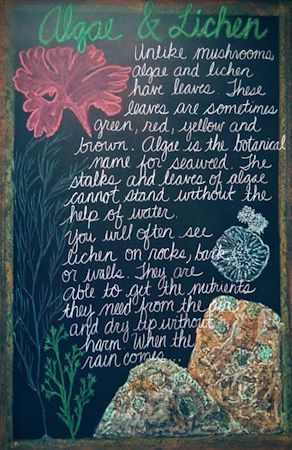 Algae & Lichen
Unlike mushrooms,
algae and lichen
have leaves. These
leaves are sometimes
green, red, yellow and
brown. Algae is the botanical
name for seaweed. The
stalks and leaves of algae
cannot stand without the
help of water.
You will often see
lichen on rocks, bark
or walls. They are
able to get the nutrients
they need from the air
and dry up without
harm when the
rain comes...